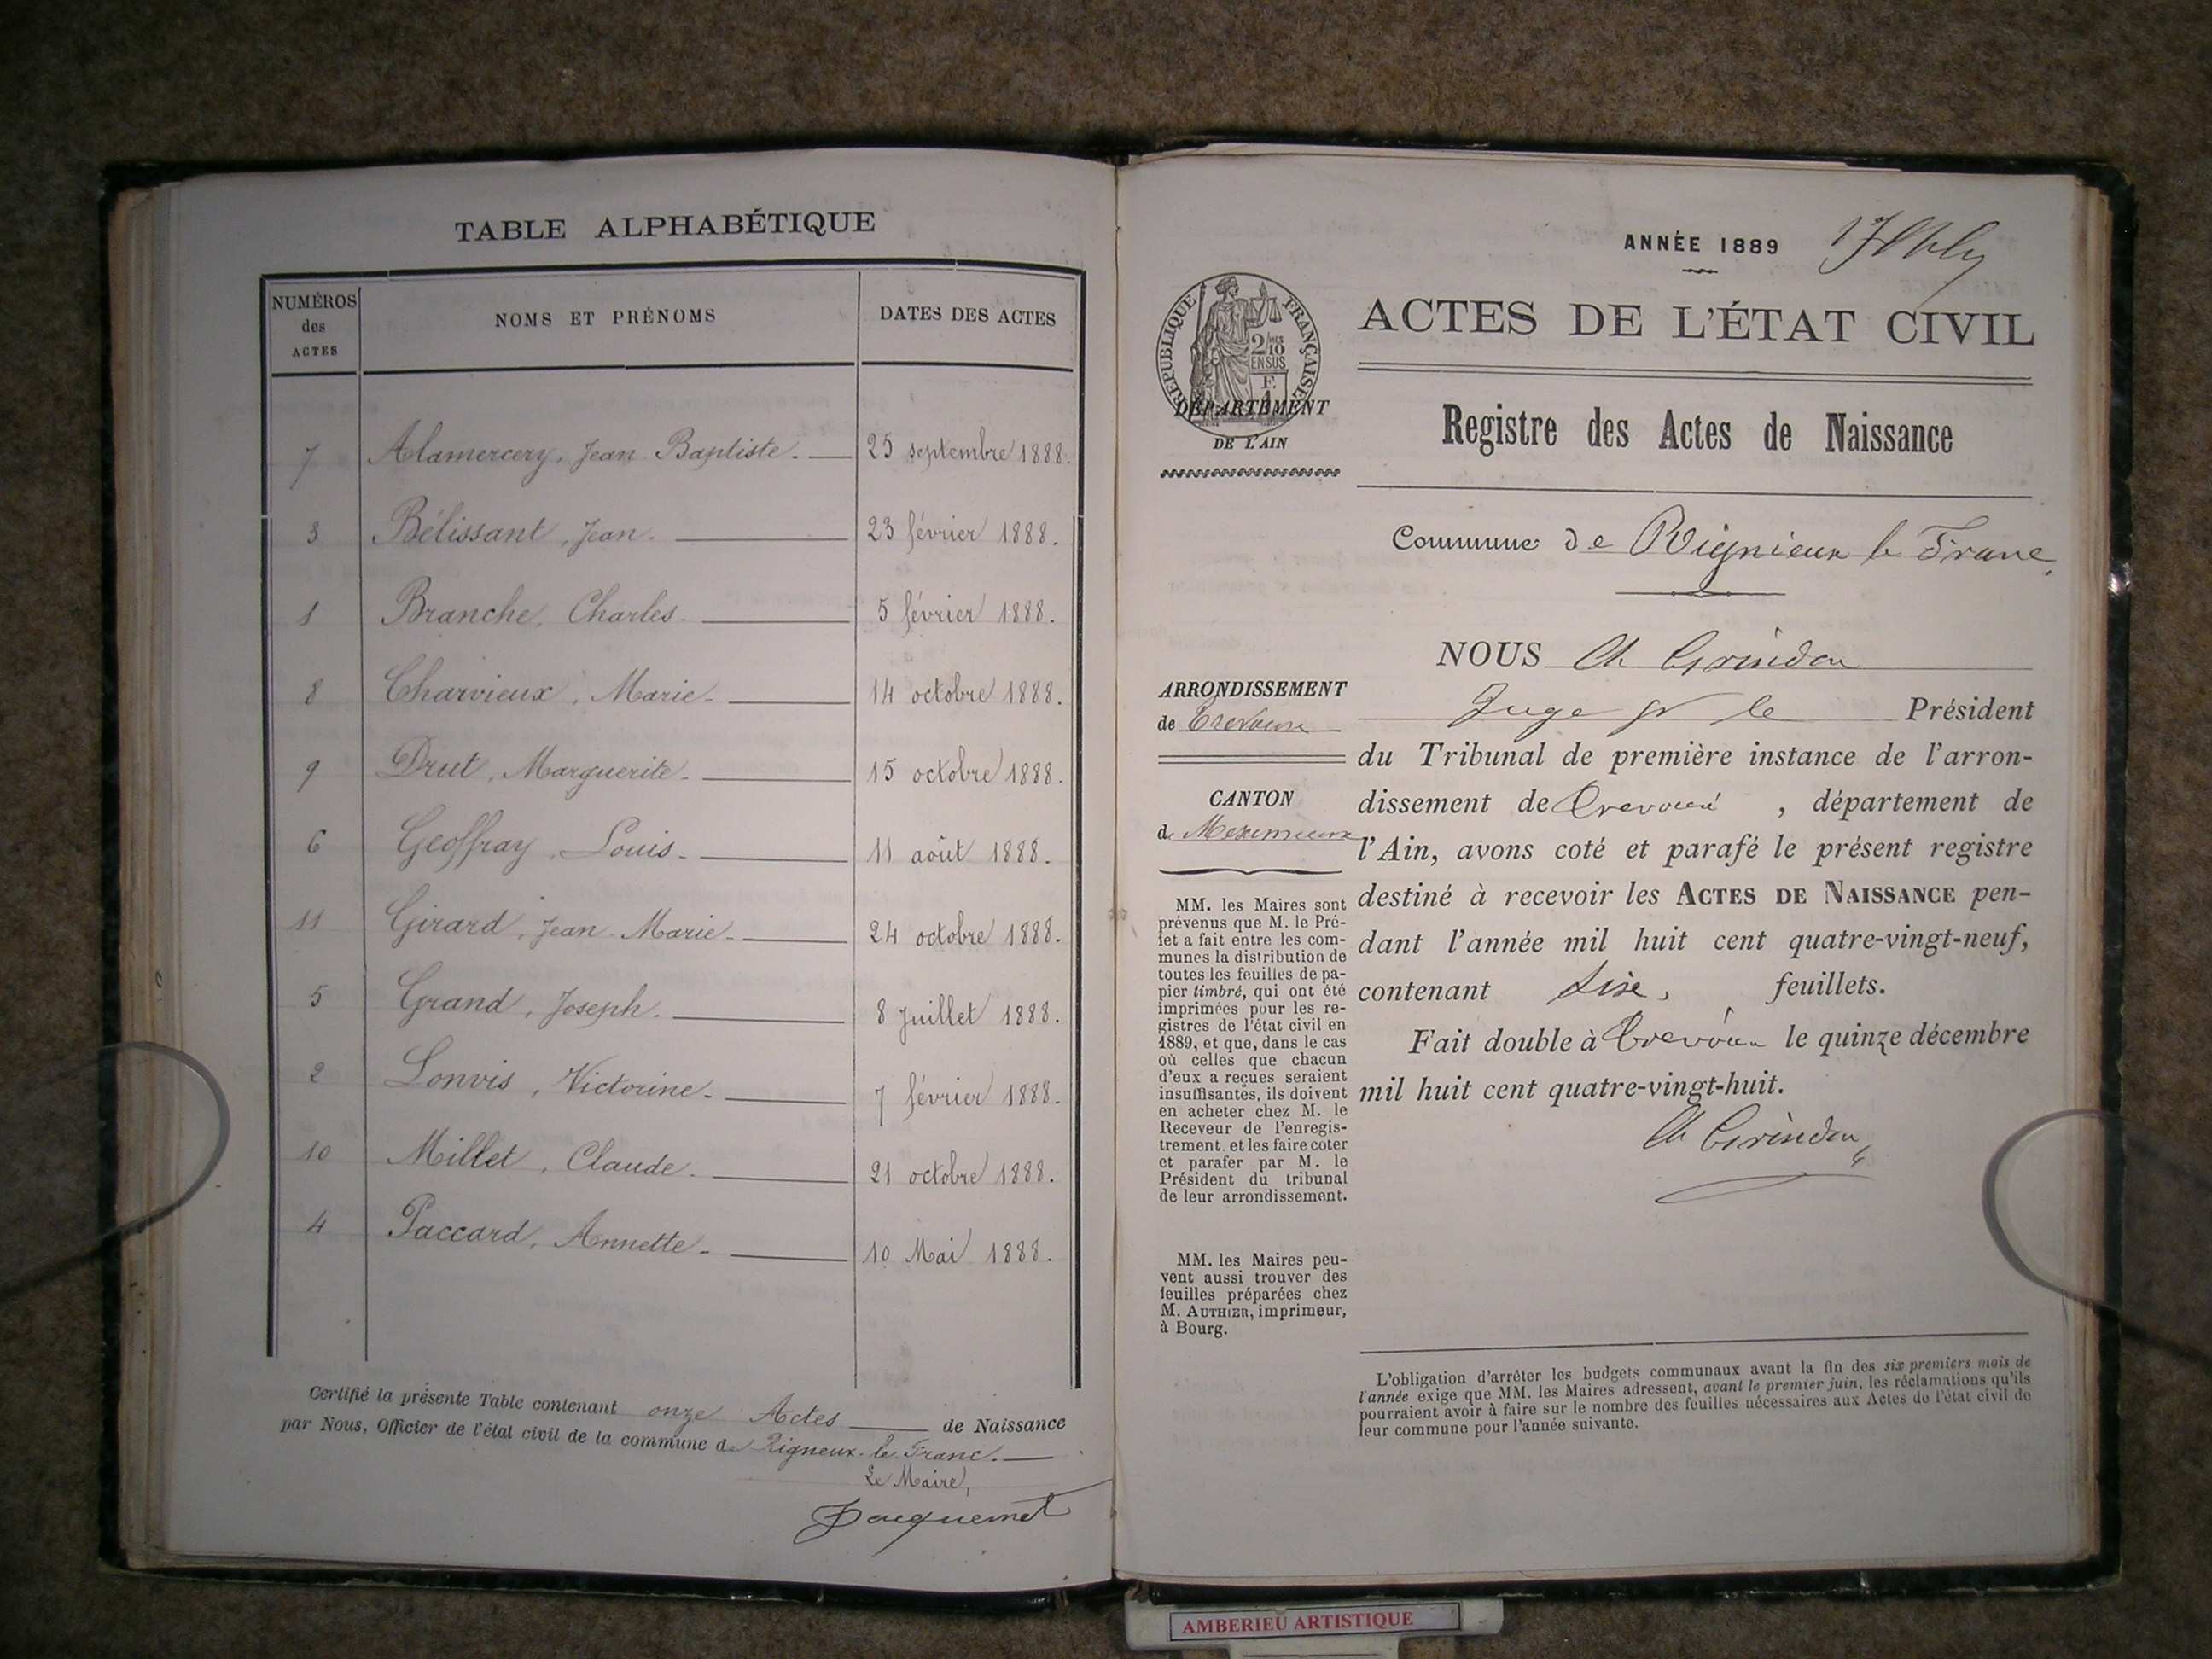 TABLE ALPHABÉTIQUE
NUMÉROS des ACTES
NOMS ET PRÉNOMS
DATES DES ACTES
7 Alamercery, Jean Baptiste. 25 septembre 1888.
3 Bélissant, Jean. 23 février 1888.
1 Branche, Charles. 5 février 1888.
8 Charvieux, Marie. 14 octobre 1888.
9 Drut, Marguerite. 15 octobre 1888.
6 Geoffray, Louis. 11 août 1888.
11 Girard, Jean Marie. 24 octobre 1888.
5 Grand, Joseph. 8 Juillet 1888.
2 Lonvis, Victorine. 7 février 1888.
10 Millet, Claude. 21 octobre 1888.
4 Paccard, Annette. 10 Mai 1888.
Certifié la présente Table contenant onze Actes de Naissance
par Nous, Officier de l'état civil de la commune de Rigneux-le-Franc.
Le Maire,
Jacquemet
ANNÉE 1889
ACTES DE L'ÉTAT CIVIL
RÉPUBLIQUE FRANÇAISE
2/10 EN SUS
DÉPARTEMENT
DE L'AIN
Registre des Actes de Naissance
Commune de Rignieux le Franc
NOUS Ch Grindon
Juge pr le Président
du Tribunal de première instance de l'arron-
dissement de Trevoux, département de
l'Ain, avons coté et parafé le présent registre
destiné à recevoir les ACTES DE NAISSANCE pen-
dant l'année mil huit cent quatre-vingt-neuf,
contenant feuillets.
Fait double à Trevoux le quinze décembre
mil huit cent quatre-vingt-huit.
Ch Grindon
ARRONDISSEMENT
de Trevoux
CANTON
de Meximieux
MM. les Maires sont
prévenus que M. le Pré-
fet a fait entre les com-
munes la distribution de
toutes les feuilles de pa-
pier timbré, qui ont été
imprimées pour les re-
gistres de l'état civil en
1889, et que, dans le cas
où celles que chacun
d'eux a reçues seraient
insuffisantes, ils doivent
en acheter chez M. le
Receveur de l'enregis-
trement, et les faire coter
et parafer par M. le
Président du tribunal
de leur arrondissement.
MM. les Maires peu-
vent aussi trouver des
feuilles préparées chez
M. AUTHIER, imprimeur,
à Bourg.
L'obligation d'arrêter les budgets communaux avant la fin des six premiers mois de
l'année exige que MM. les Maires adressent, avant le premier juin, les réclamations qu'ils
pourraient avoir à faire sur le nombre des feuilles nécessaires aux Actes de l'état civil de
leur commune pour l'année suivante.
AMBERIEU ARTISTIQUE